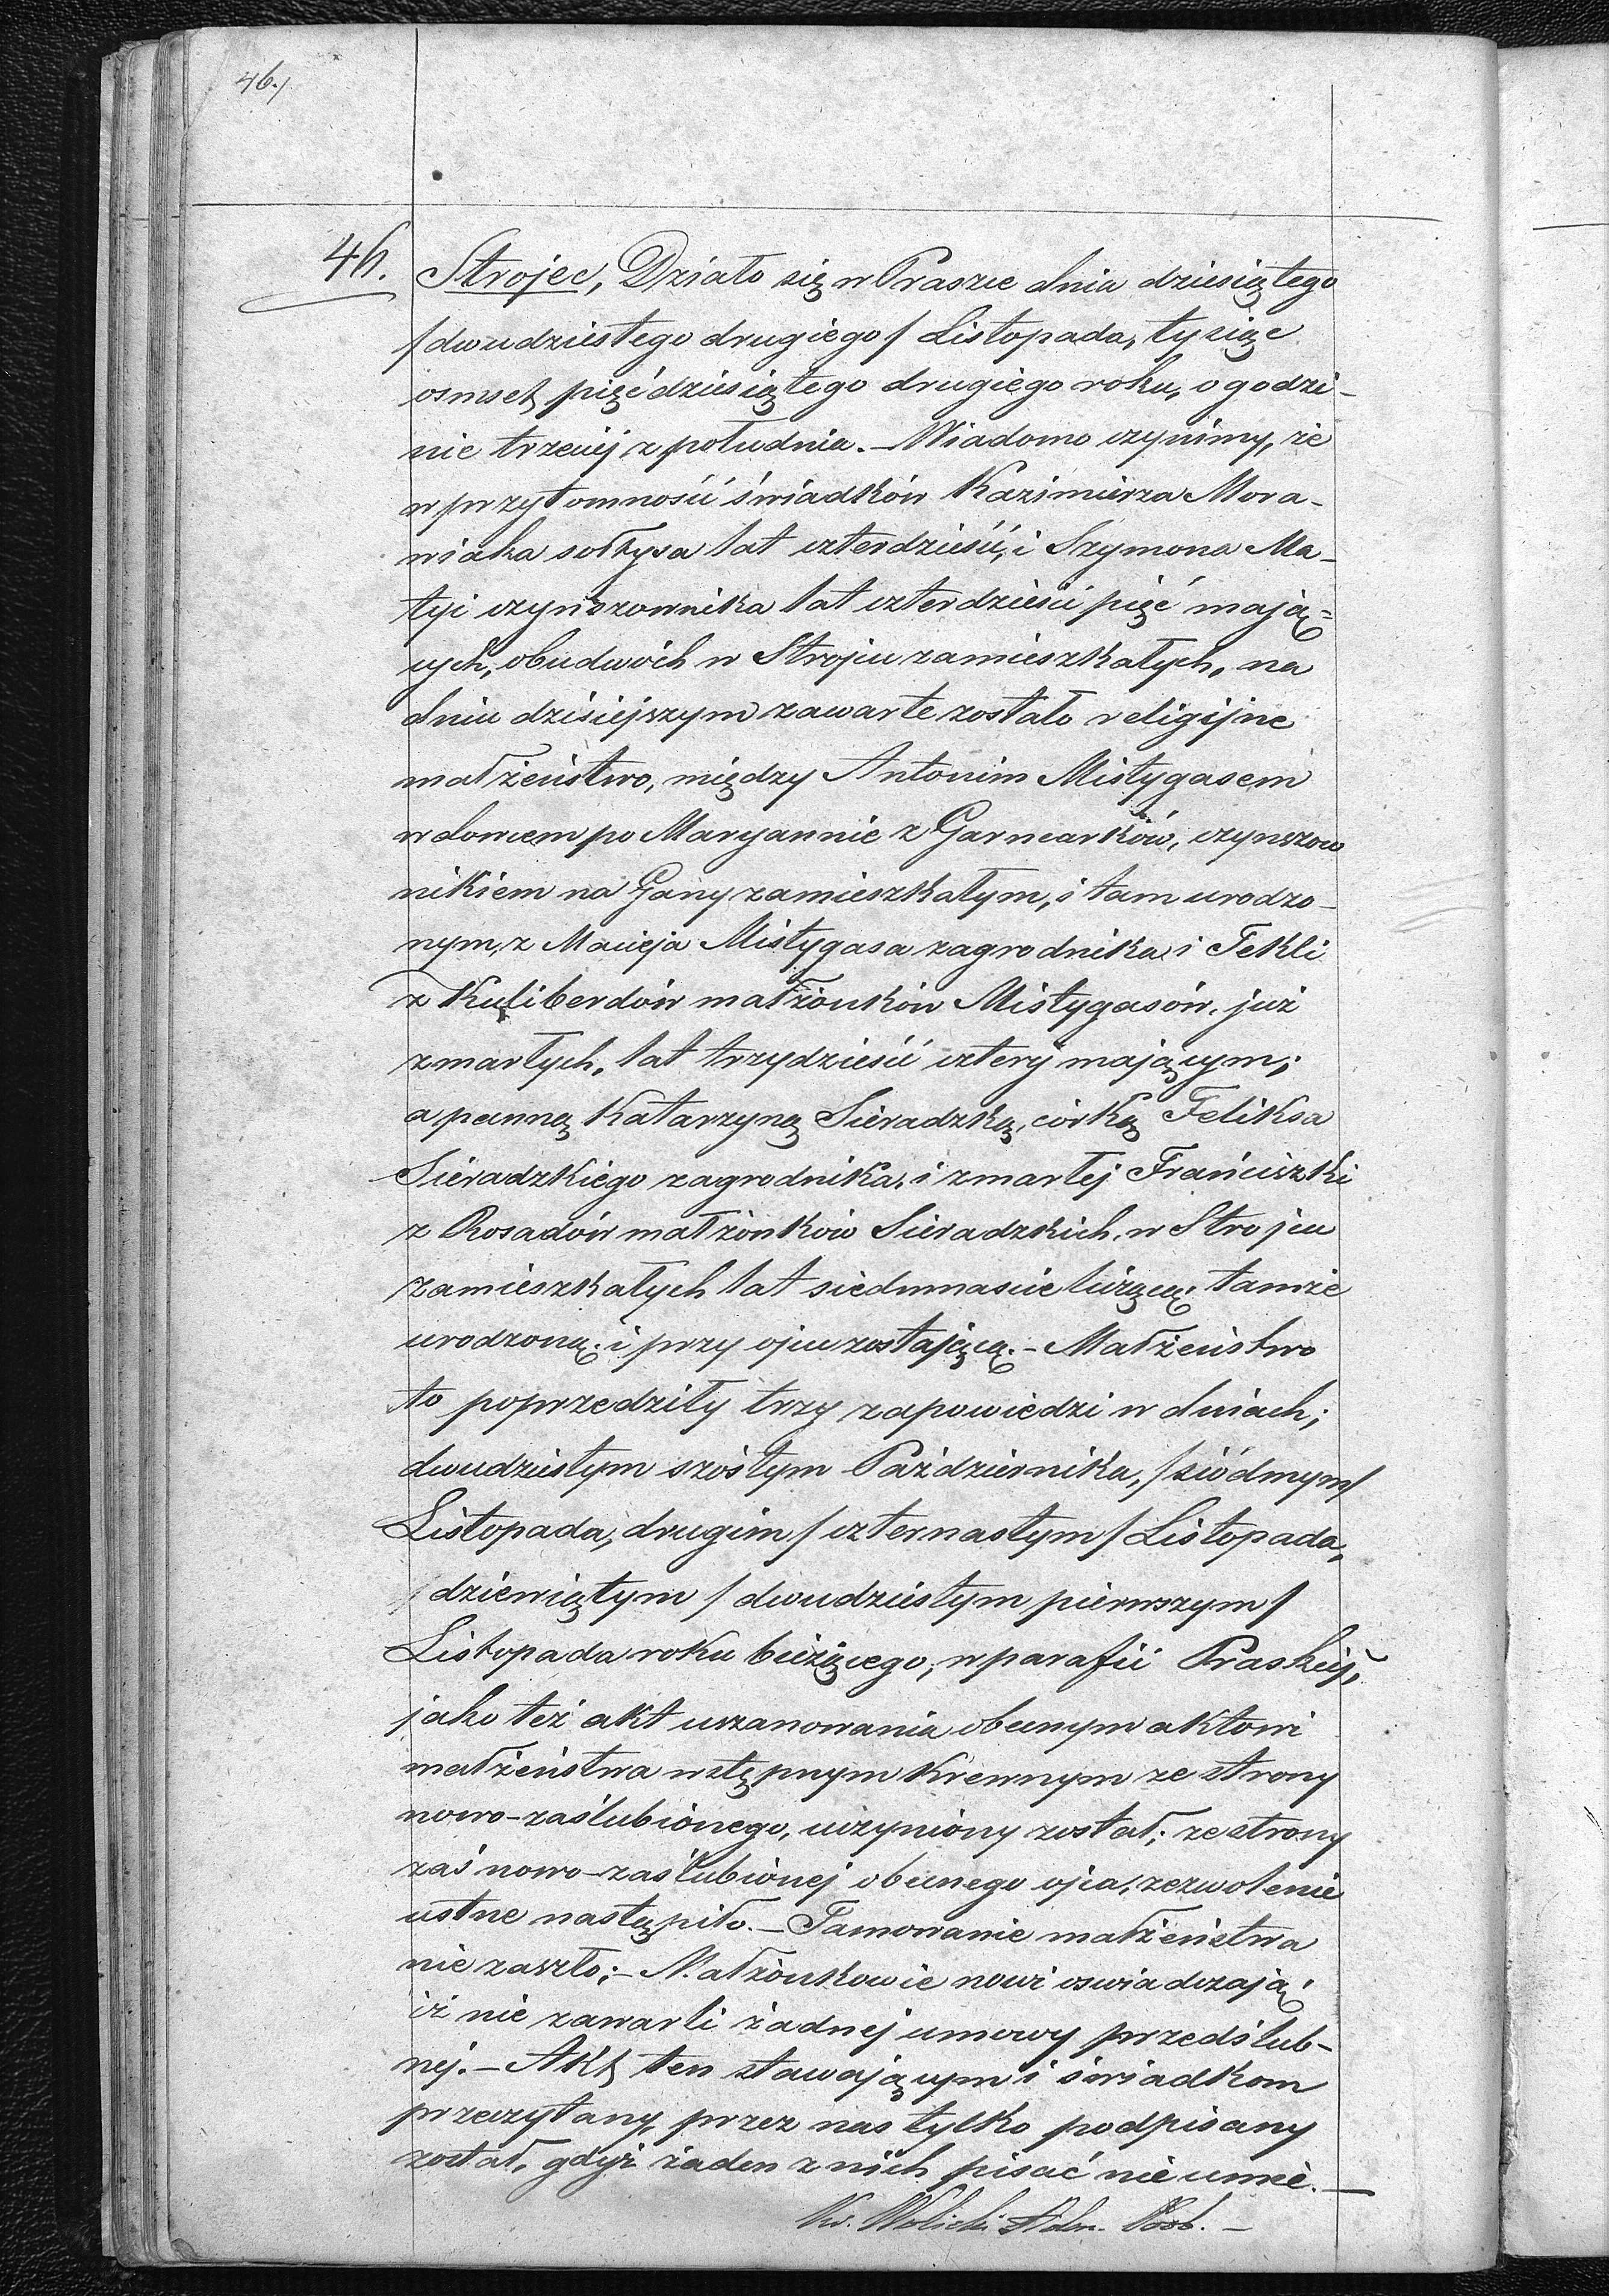 46./
46.
Strojec, Działo się w Praszce dnia dziesiątego
/dwudziestego drugiego/ Listopada, tysiąc
osmset pięćdziesiątego drugiego roku, o godzi-
nie trzeciej z południa. – Wiadomo czynimy, że
w przytomności świadków Kazimierza Mora-
wiaka sołtysa lat czterdzieści, i Szymona Ma-
tyi czynszownika lat czterdzieści pięć mają=
cych, obudwóch w Strojcu zamieszkałych, na
dniu dzisiejszym zawarte zostało religijne
małżeństwo, między Antonim Mistygasem
wdowcem po Maryannie z Garncarków, czynszow
nikiem na Gany zamieszkałym, i tam urodzo-
nym, z Macieja Mistygasa zagrodnika i Tekli
z Kuliberdów małżonków Mistygasów, już
zmarłych, lat trzydzieści cztery mającym;
a panną Katarzyną Sieradzką, córką Feliksa
Sieradzkiego zagrodnika, i zmarłej Franciszki
z Rosadów małżonków Sieradzkich, w Strojcu
zamieszkałych lat siedmnaście liczącą, tamże
urodzoną, i przy ojcu zostającą. – Małżeństwo
to poprzedziły trzy zapowiedzi w dniach;
dwudziestym szóstym Października, /siódmym/
Listopada, drugim /czternastym/ Listopada,
dziewiątym /dwudziestym pierwszym/
Listopada roku bieżącego, w parafii Praskiej,
jako też akt uszanowania obecnym aktowi
małżeństwa wstępnym krewnym ze strony
nowo-zaślubionego, uczyniony został; ze strony
zaś nowo-zaślubionej obecnego ojca, zezwolenie
ustne nastąpiło. – Tamowanie małżeństwa
nie zaszło; – Małżonkowie nowi oswiadczają,
iż nie zawarli żadnej umowy przedślub-
nej. – Akt ten stawającym i świadkom
przeczytany, przez nas tylko podpisany
został, gdyż żaden z nich pisać nie umie. –
X. Wolicki Adm. Pos. –